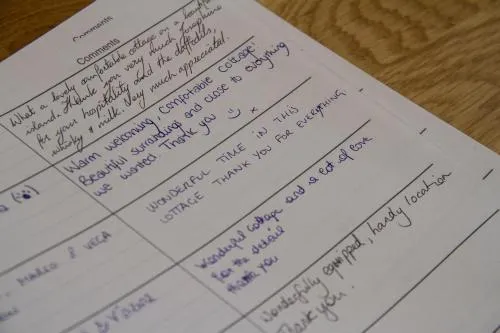 Comments
Comments
What a lovely comfortable cottage on a beautiful
island. Thank you very much Josephine
for your hospitality and the daffodils,
whisky & milk. Very much appreciated.
Warm welcoming, comfortable cottage.
Beautiful surroundings and close to everything
we wanted. Thank you x
WONDERFUL TIME IN THIS
COTTAGE THANK YOU FOR EVERYTHING
MARCO & VEGA
Wonderful cottage and a lot of love
for the detail
thank you
Wonderfully equipped, handy location
Thank you.